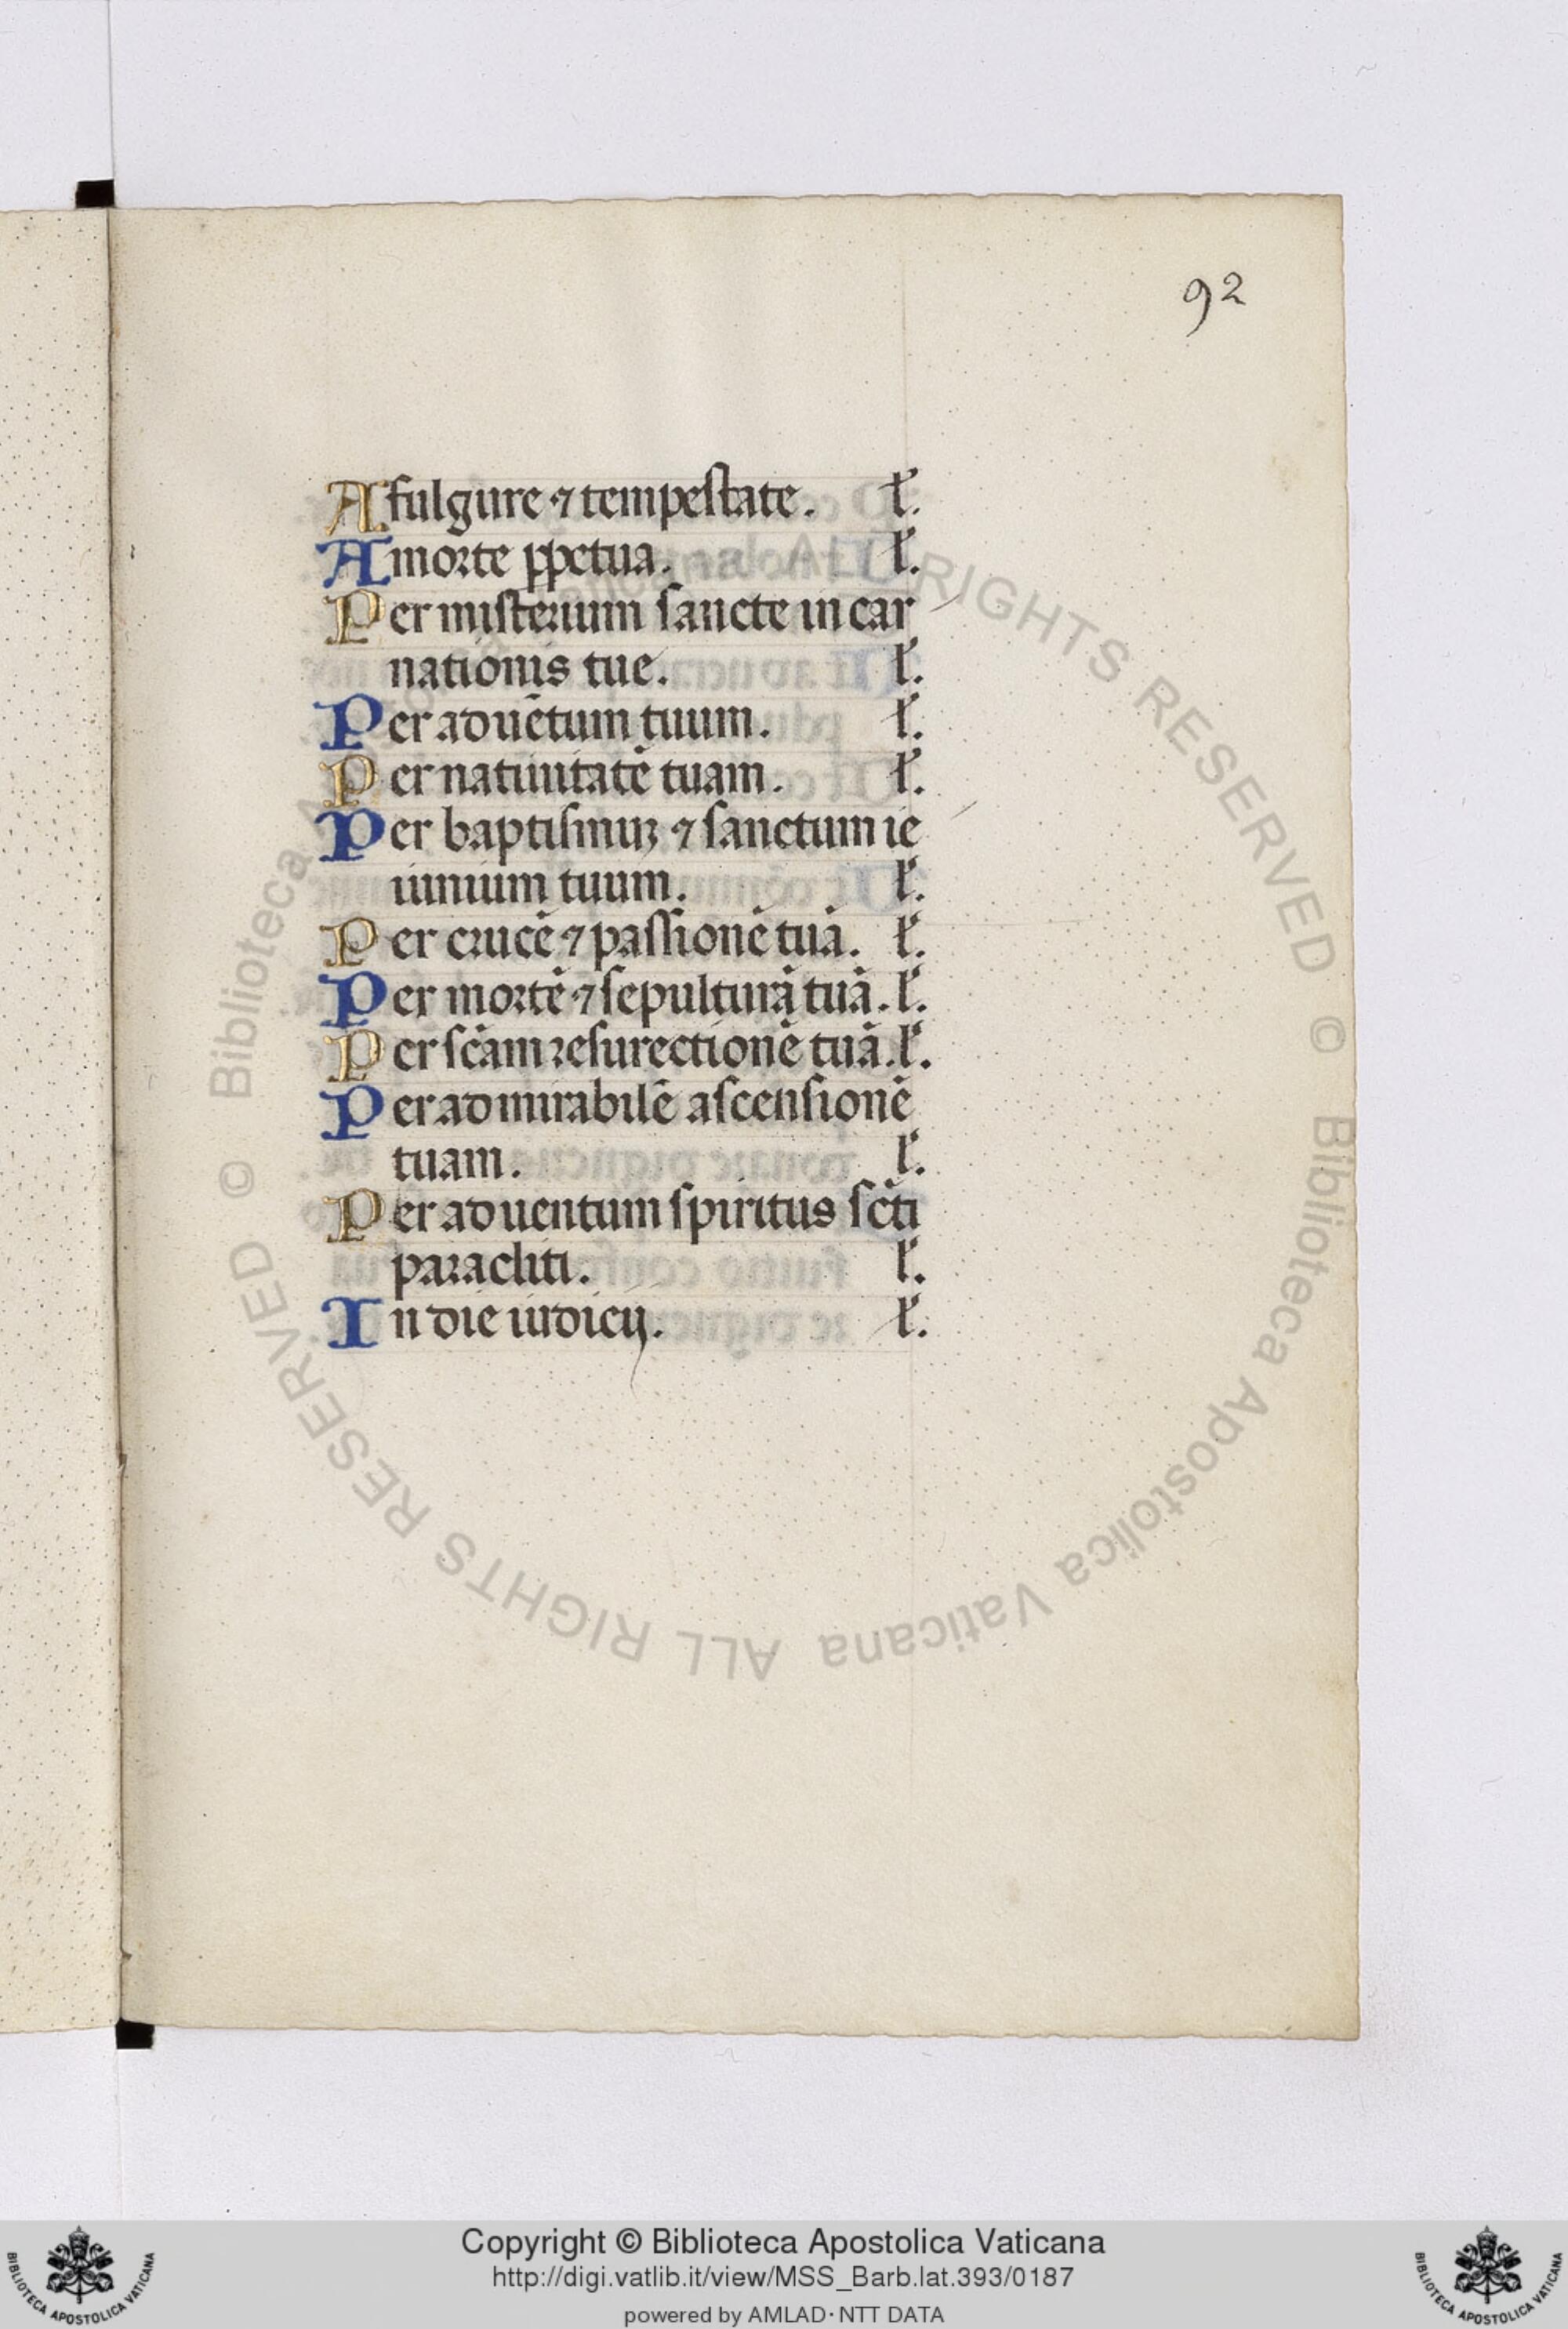 92
A fulgure ⁊ tempestate. l̃.
A morte ꝑpetua. l̃.
Per misterium sancte incar
nationis tue. l̃.
Per aduẽtum tuum. l̃.
Per natiuitatẽ tuam. l̃.
Per baptismuꝫ ⁊ sanctum ie
iunium tuum. l̃.
Per crucẽ ⁊ passionẽ tuã. l̃.
Per mortẽ ⁊ sepulturã tuã. l̃.
Per sc̃am resurectionẽ tuã. l̃.
Per admirabilẽ ascensionẽ
tuam. l̃.
Per aduentum spiritus sc̃ti
paracliti. l̃.
In die iudicij. l̃.
© Biblioteca Apostolica Vaticana ALL RIGHTS RESERVED © Biblioteca Apostolica Vaticana ALL RIGHTS RESERVED
Copyright © Biblioteca Apostolica Vaticana
http://digi.vatlib.it/view/MSS_Barb.lat.393/0187
powered by AMLAD·NTT DATA
BIBLIOTECA APOSTOLICA VATICANA
BIBLIOTECA APOSTOLICA VATICANA